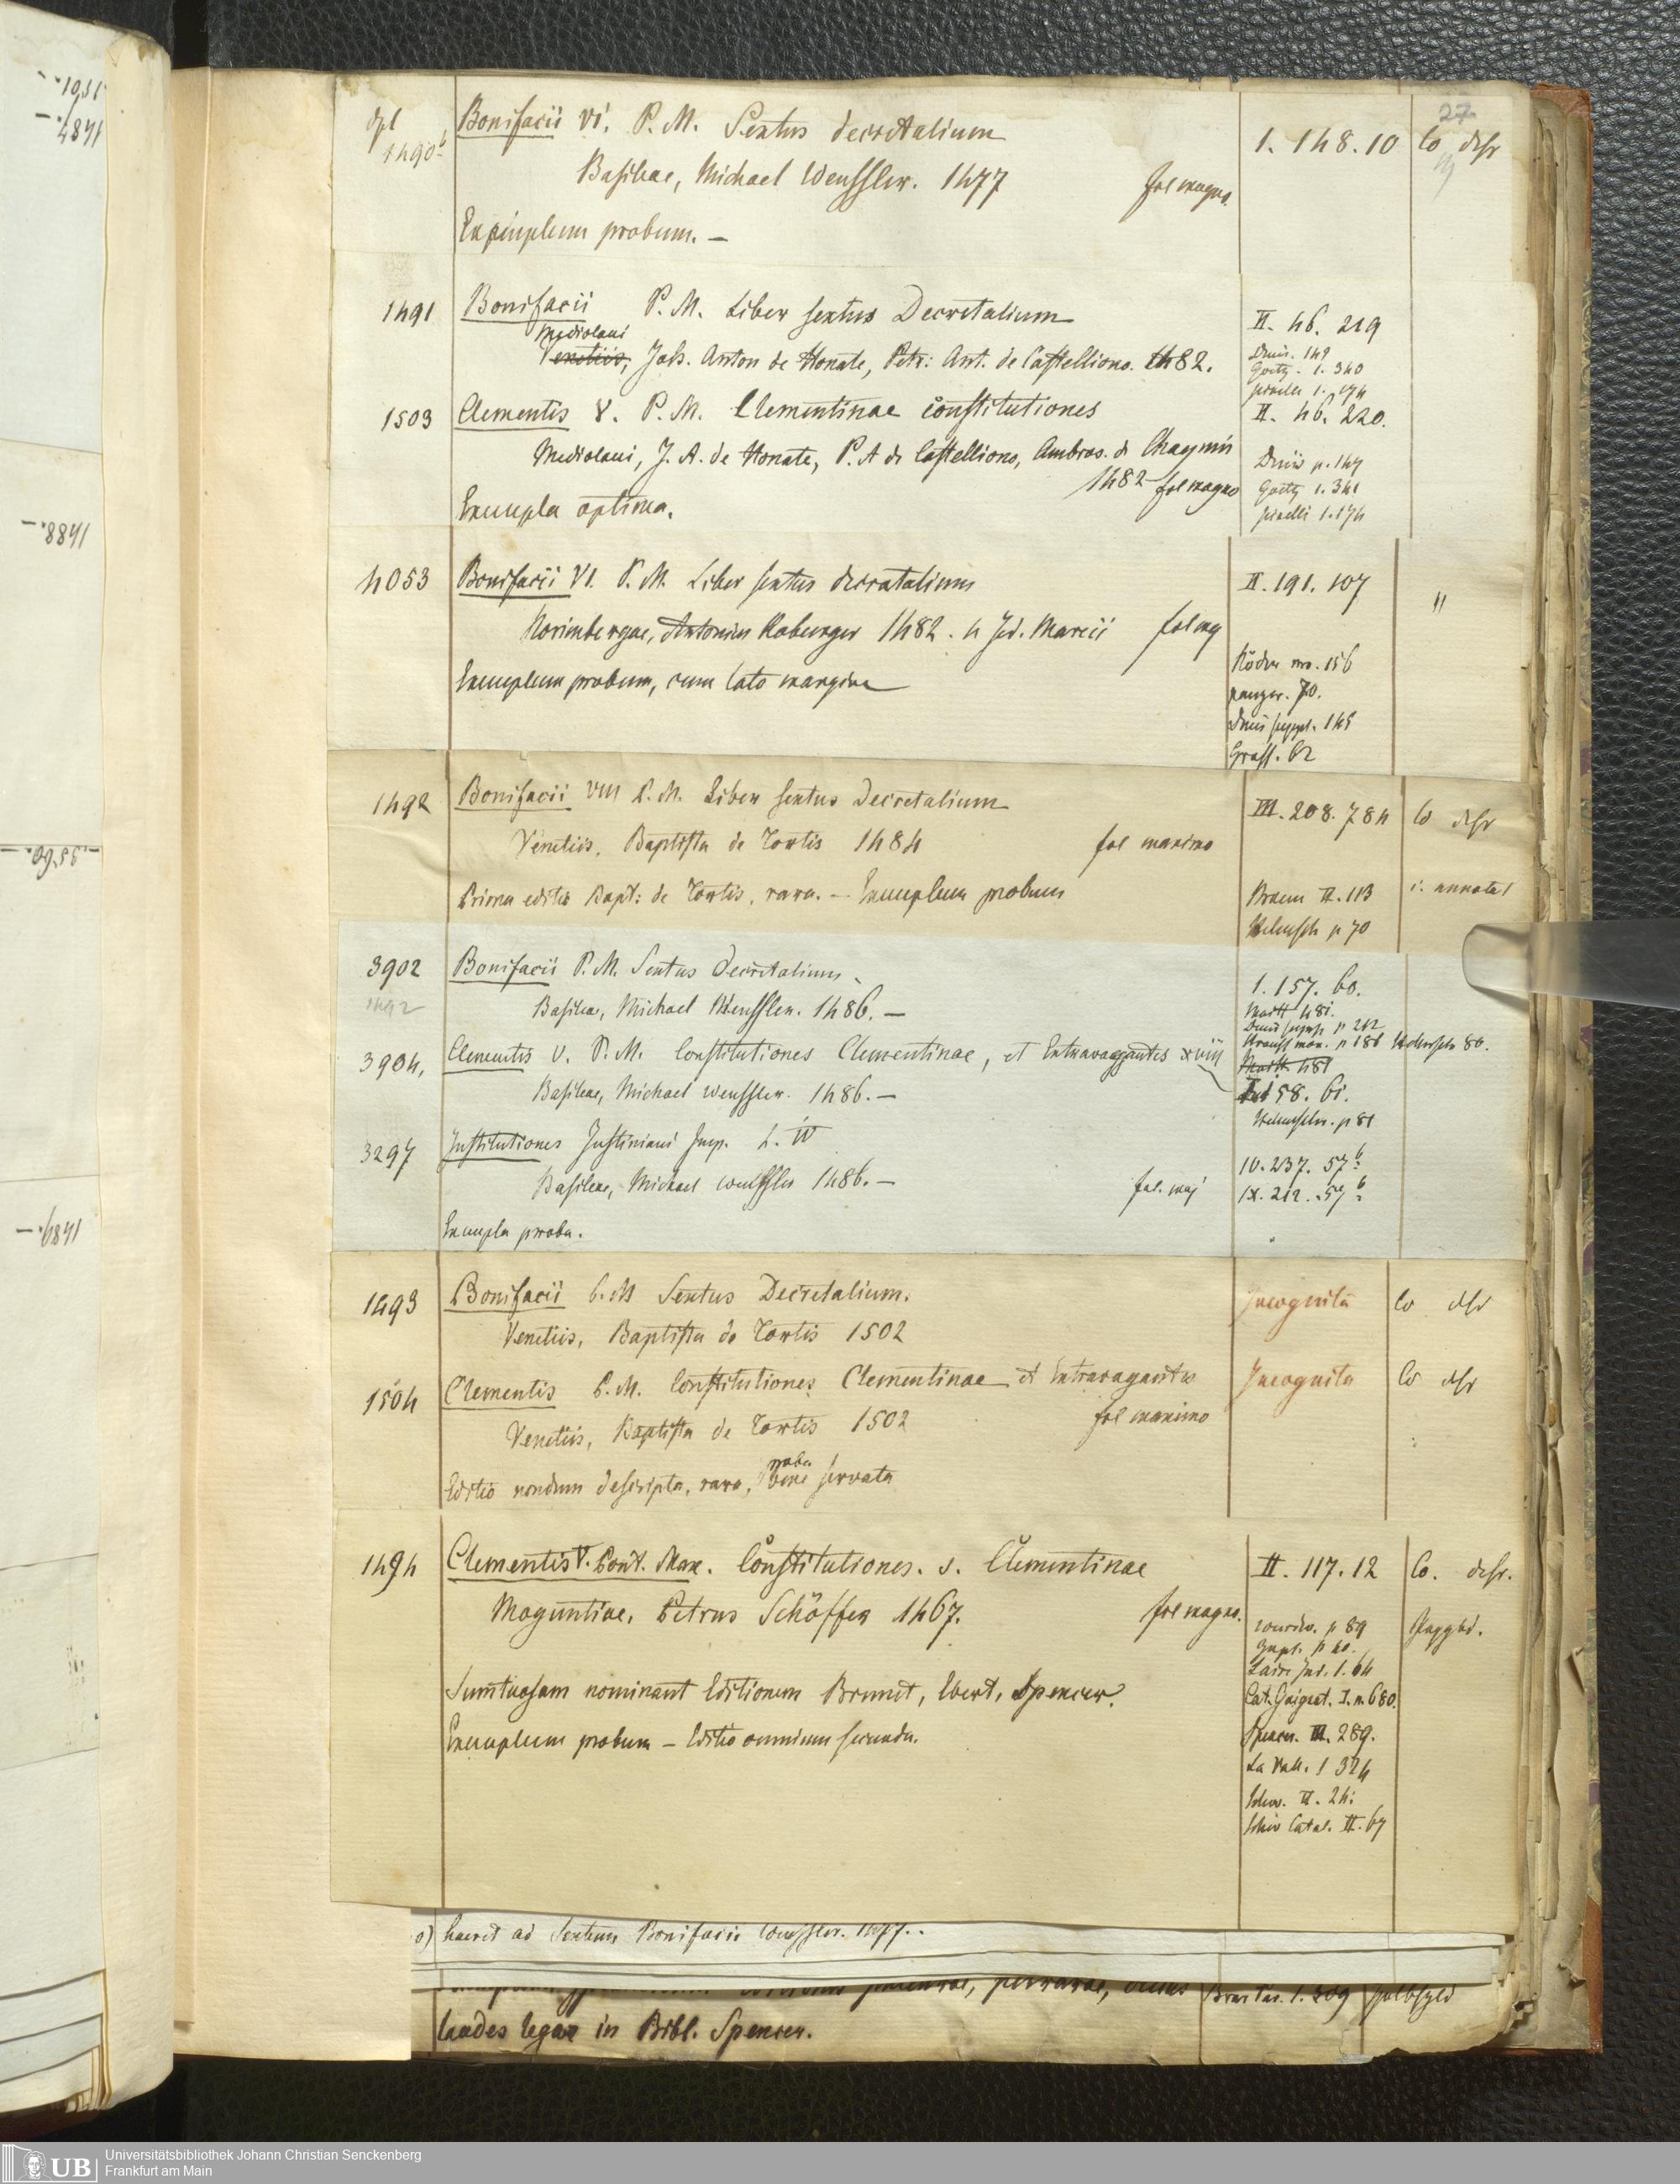 27
dpl
1490b
Bonifacii VI. P. M. Sextus decretalium
1. 148. 10
Co desr
Basileae, Michael Wenssler. 1477
fol magno.
Exemplum probum. —
1491
Bonifacii P. M. Liber sextus Decretalium
II. 46. 219
Mediolani
Venetiis, Joh. Anton de Honate, Petr: Ant. de Castelliono. 1482.
Denis. 149
Goetz. 1. 340
pinelli 1. 174
1503
Clementis V. P. M. Clementinae constitutiones
II. 46. 220.
Mediolani, J. A. de Honate, P. A de Castelliono, Ambros. de Chaymis
1482 fol magno
Denis p. 147
Goetz 1. 341
pinelli 1. 174
Exempla optima.
4053
Bonifacii VI. P. M. Liber sextus decretalium
II. 191. 107
"
Norimbergae, Antonius Koburger 1482. 4 Jd. Marcii
fol mg
Exemplum probum, cum lato margine
Röder no. 156
panzer. 70.
Denis suppl. 145
Grass. 62
1492
Bonifacii VIII P. M. Liber sextus Decretalium
III. 208. 784
Co desr
Venetiis, Baptista de Tortis 1484
fol maximo
Prima editio Bapt: de Tortis, rara. — Exemplum probum
Braun II. 113
Helmsch p 70
3902
1492
Bonifacii P. M. Sextus Decretalium
1. 157. 60.
Basileae, Michael Wenssler. 1486. —
Maitt 481.
Denis suppl. p 212
3904,
Clementis V. P. M. Constitutiones Clementinae, et Extravagantes xviii
Maitt 481
Basileae, Michael Wenssler. 1486. —
158. 61.
Helmschr. p 81
3297
Institutiones Justiniani Imp. L. IV
IV. 237. 57b
Basileae, Michael Wenssler 1486. —
fol. maj
IX. 212. 57b
Exempla proba.
1493
Bonifacii P. M Sextus Decretalium.
Incognita
Co desr
Venetiis, Baptista de Tortis 1502
1504
Clementis P. M. Constitutiones Clementinae et Extravagantes
Incognita
Co desr
Venetiis, Baptista de Tortis 1502
fol maximo
proba
Editio nondum descripta, rara, bene servata
1494
Clementis V. Pont. Max. Constitutiones. s. Clementinae
II. 117. 12
Co. desr.
Moguntiae, Petrus Schöffer 1467.
fol magno.
würdw. p 89
Laire Ind. 1. 64
Sumtuosam nominant Editionem Brunet, Ebert, Spencer.
Cat. Gaignat. I. n. 680.
Exemplum probum — Editio omnium secunda.
Spencer. III. 289.
La Vall. 1 324
Schw. II. 24.
Catal. II. 67
o) haeret ad Sextum Bonifacii Wenssler. 1477.
laudes legas in Bibl. Spencer.
1. 309
1501. —
1487. —
1488. —
3560. —
1489. —
UB
Universitätsbibliothek Johann Christian Senckenberg
Frankfurt am Main